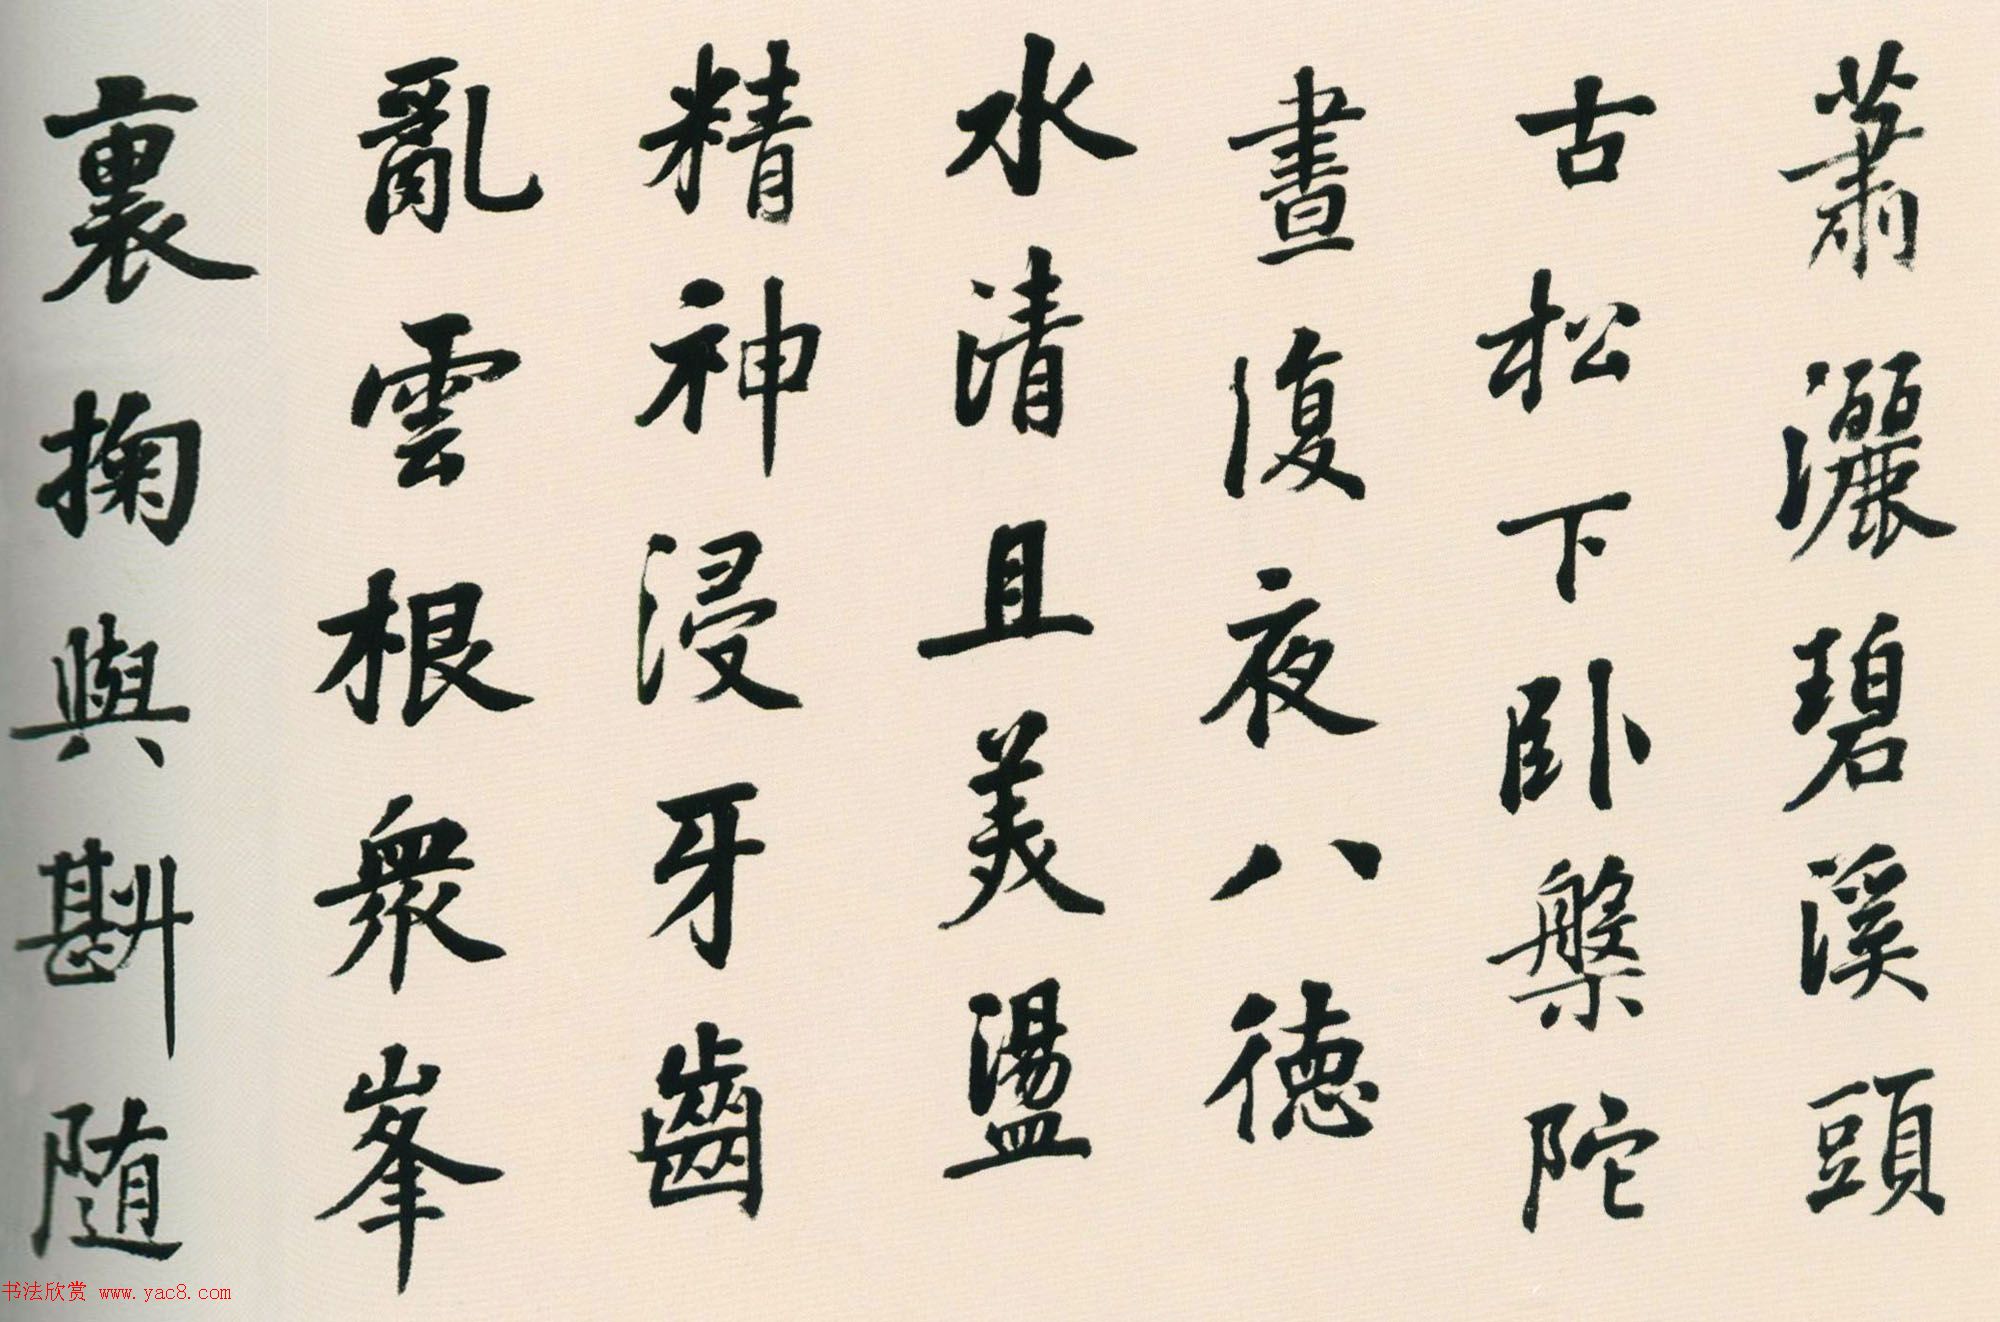 蕭灑碧溪頭
古松下卧槃陀
晝復夜八德
水清且美盪
精神浸牙齒
亂雲根衆峯
裏掬與斟随
书法欣赏 www.yac8.com